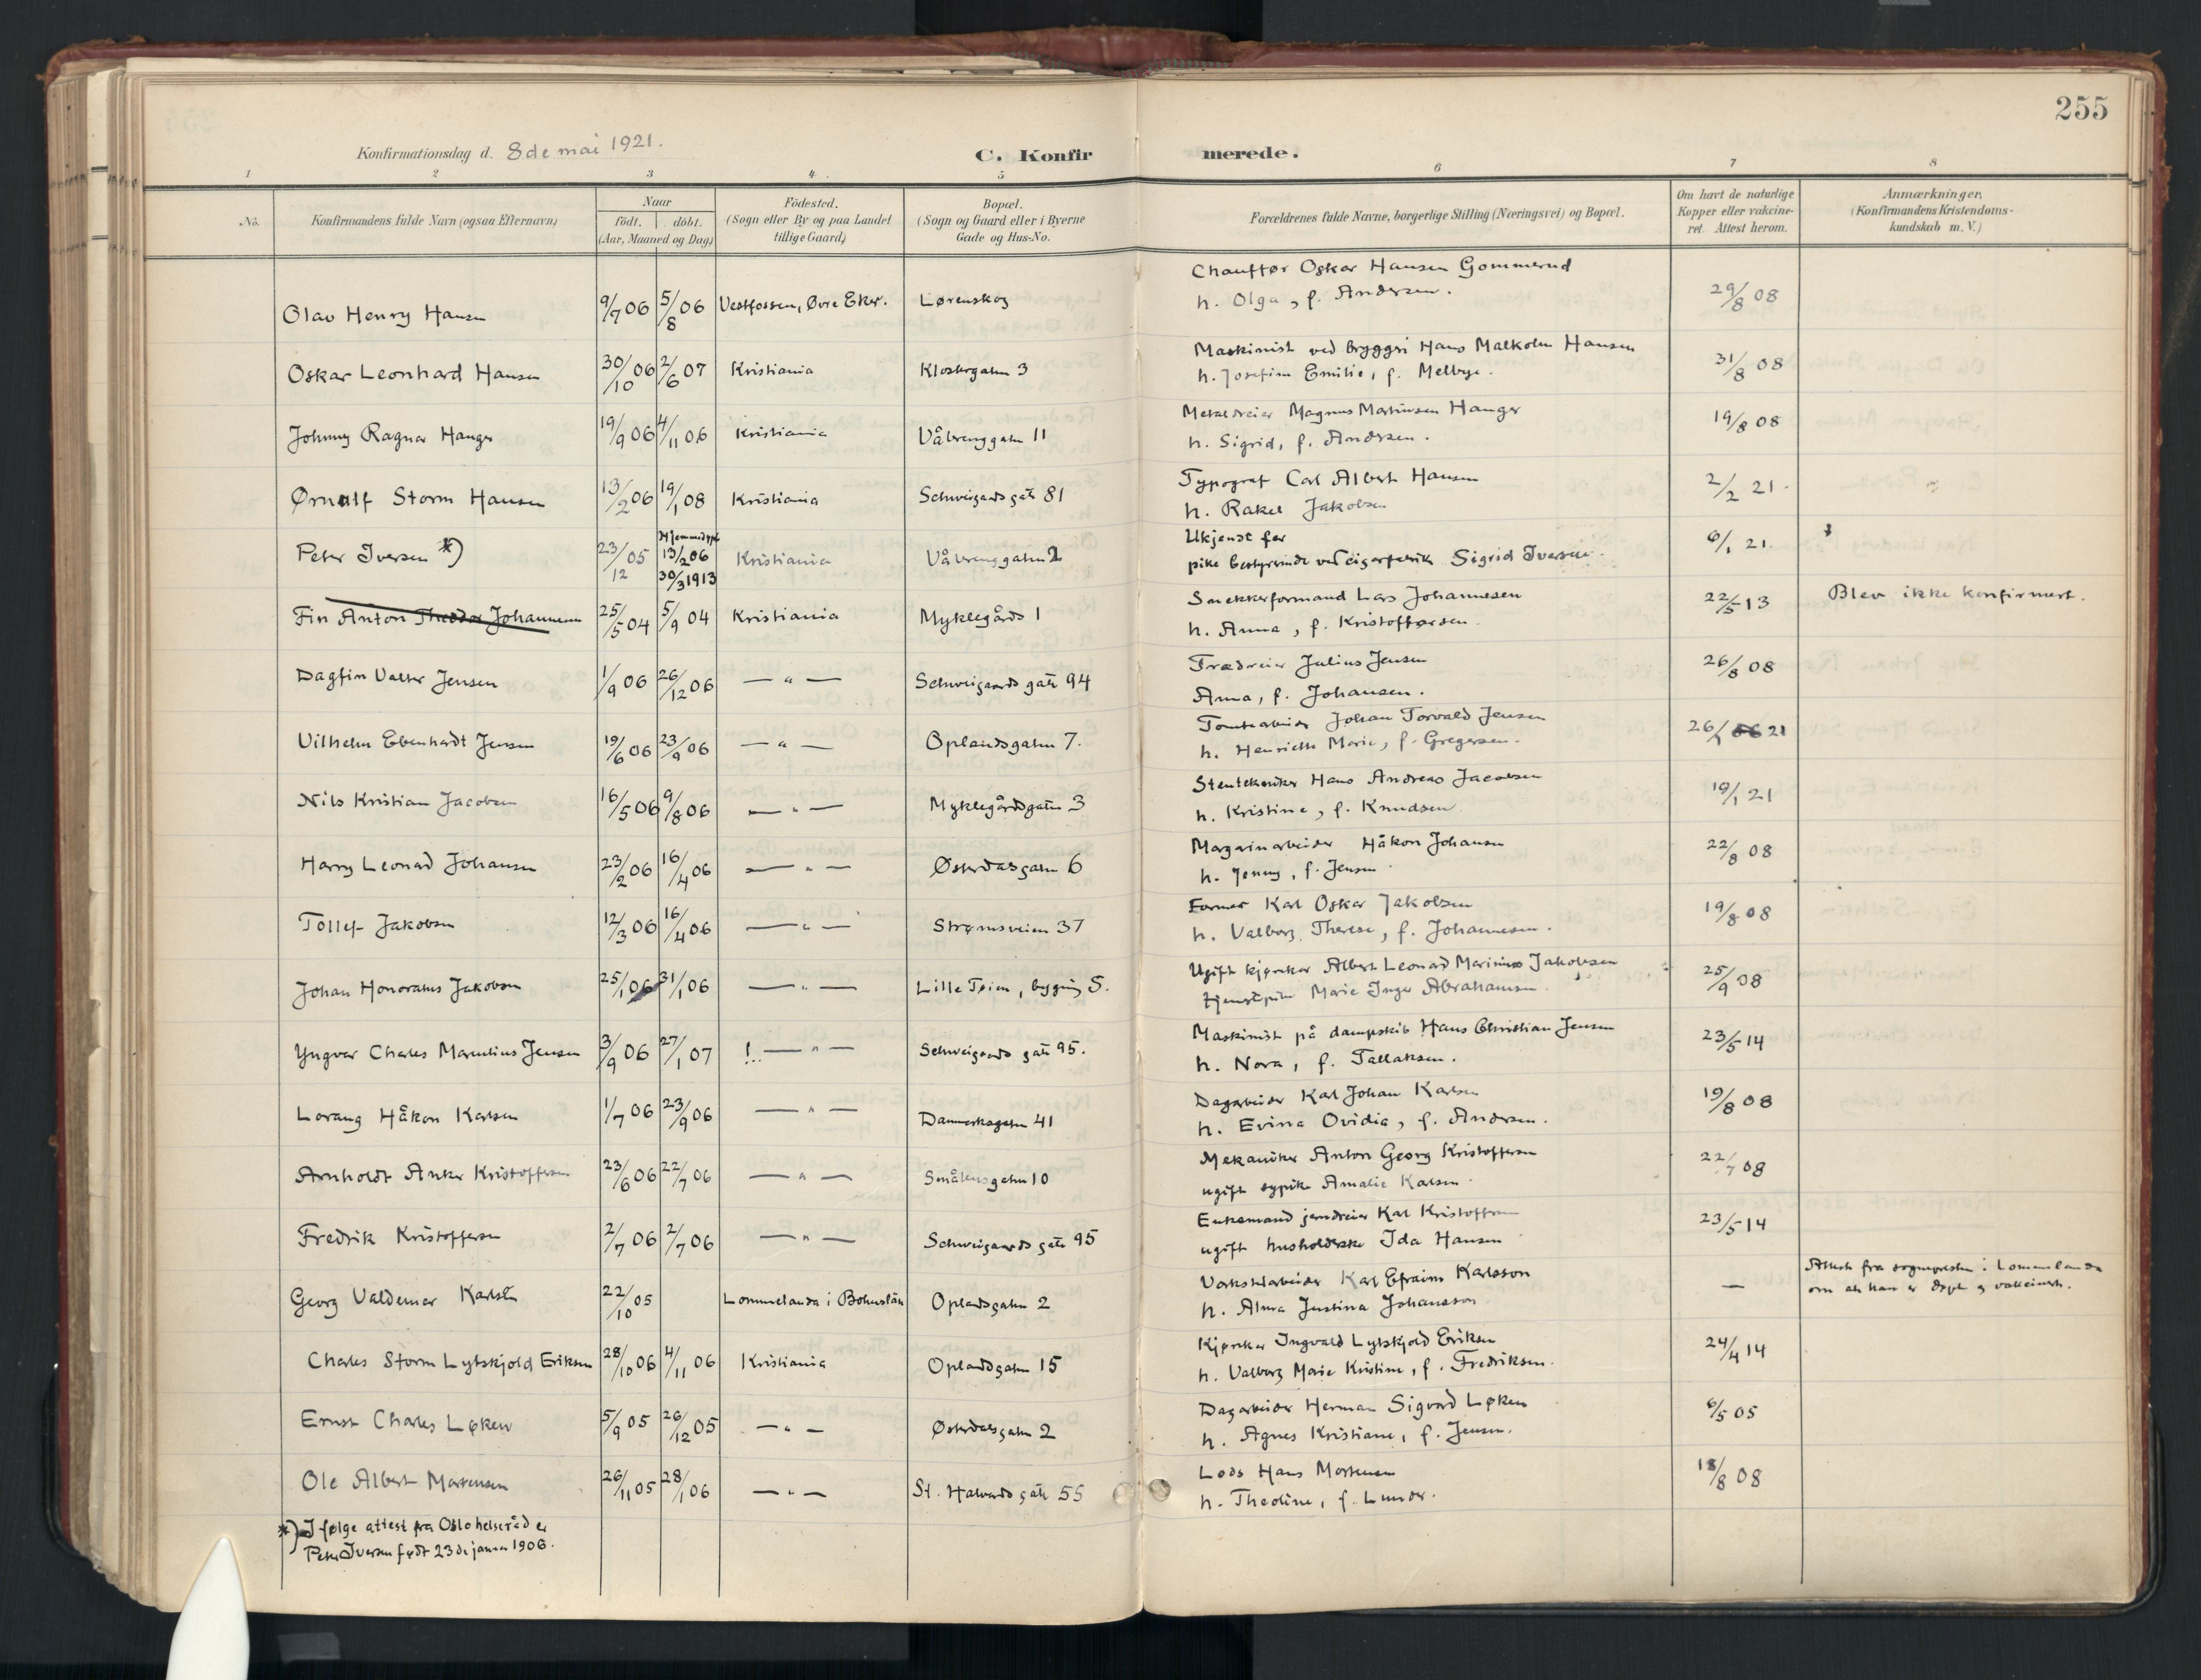 255
Konfirmationsdag d. 8de mai 1921.
C. Konfirmerede.
1 2 3 4 5 6 7 8
No.
Konfirmandens fulde Navn (ogsaa Efternavn)
Naar
födt. döbt.
(Aar, Maaned og Dag)
Födested.
(Sogn eller By og paa Landet
tillige Gaard)
Bopæl.
(Sogn og Gaard eller i Byerne
Gade og Hus-No.
Forældrenes fulde Navne, borgerlige Stilling (Næringsvei) og Bopæl.
Om havt de naturlige
Kopper eller vakcine-
ret. Attest herom.
Anmærkninger.
(Konfirmandens Kristendoms-
kundskab m. V.)
Chauffør Oskar Hansen Gommerud
Olav Henry Hansen 9/7 06 5/8 06 Vestfossen, Øvre Eker. Lørenskog h. Olga, f. Andersen. 29/8 08
Maskinist ved bryggeri Hans Malkolm Hansen
Oskar Leonhard Hansen 30/10 06 2/6 07 Kristiania Klostergaten 3 h. Josefine Emilie, f. Melbye. 31/8 08
Metaldreier Magnus Martinsen Hanger
Johnny Ragnar Hanger 19/9 06 4/11 06 Kristiania Vålerenggaten 11 h. Sigrid, f. Andersen. 19/8 08
Typograf Carl Albert Hansen
Ørnulf Storm Hansen 13/2 06 19/1 08 Kristiania Schweigaards gate 81 h. Rakel Jakobsen 2/2 21.
Hjemmedøpt Ukjendt far
Peter Iversen *) 23/12 05 13/2 06 30/3 1913 Kristiania Vålerenggaten 2 pike bestyrerinde ved cigarfabrik Sigrid Iversen. 6/1 21.
Snekkerformand Lars Johannesen
Fin Anton Theodor Johannesen 25/5 04 5/9 04 Kristiania Myklegårds 1 h. Anna, f. Kristoffersen. 22/5 13 Blev ikke konfirmert.
Trædreier Julius Jensen
Dagfin Valter Jensen 1/9 06 26/12 06 — " — Schweigaards gate 94 Anna, f. Johansen. 26/8 08
Tomtearbeider Johan Torvald Jensen
Vilhelm Ebenhardt Jensen 19/6 06 23/9 06 — " — Oplandsgaten 7. h. Henriette Marie, f. Gregersen. 26/1 21
Stentekniker Hans Andreas Jacobsen
Nils Kristian Jacobsen 16/5 06 9/8 06 — " — Myklegårdsgaten 3 h. Kristine, f. Knudsen 19/1 21
Margarinarbeider Håkon Johansen
Harry Leonard Johansen 23/2 06 16/4 06 — " — Østerdalsgaten 6 h. Jenny, f. Jensen 22/8 08
Former Karl Oskar Jakobsen
Tollef Jakobsen 12/3 06 16/4 06 — " — Strømsveien 37 h. Valborg Therese, f. Johannesen. 19/8 08
Ugift kjørekar Albert Leonard Marinius Jakobsen
Johan Honoratus Jakobsen 25/1 06 31/1 06 — " — Lille Tøien, bygning S. tjenestepike Marie Inger Abrahamsen. 25/9 08
Maskinist på dampskib Hans Christian Jensen
Yngvar Charles Marentius Jensen 3/9 06 27/1 07 !.. — " — Schweigaards gate 95. h. Nora, f. Tallaksen. 23/5 14
Dagarbeider Karl Johan Karlsen
Lorang Håkon Karlsen 1/7 06 23/9 06 — " — Danmarksgaten 41 h. Evina Ovidia, f. Andersen. 19/8 08
Mekaniker Anton Georg Kristoffersen
Arnholdt Anker Kristoffersen 23/6 06 22/7 06 — " — Smålensgaten 10 ugift sypike Amalie Karlsen. 22/7 08
Enkemand jerndreier Karl Kristoffersen
Fredrik Kristoffersen 2/7 06 2/7 06 — " — Schweigaards gate 95 ugift husholderske Ida Hansen 23/5 14
Verkstedarbeider Karl Efraim Karlsson
Georg Valdemar Karlsen 22/10 05 Lommelanda i Bohuslän Oplandsgaten 2 h. Alma Justina Johansson — Attest fra sogneprest i Lommelanda
om at han er døpt og vakcinert.
Kjørekar Ingvald Lytskjold Eriksen
Charles Storm Lytskjold Eriksen 28/10 06 4/11 06 Kristiania Oplandsgaten 15 h. Valborg Marie Kristine, f. Fredriksen. 24/4 14
Dagarbeider Herman Sigvard Løken
Ernst Charles Løken 5/9 05 26/12 05 — " — Østerdalsgaten 2 h. Agnes Kristiane, f. Jensen. 6/5 05
Lods Hans Mortensen
Ole Albert Mortensen 26/11 05 28/1 06 — " — St. Halvards gate 55 h. Theoline, f. Lunder. 18/8 08
*) I følge attest fra Oslo helseråd er
Peter Iversen født 23de januar 1906.